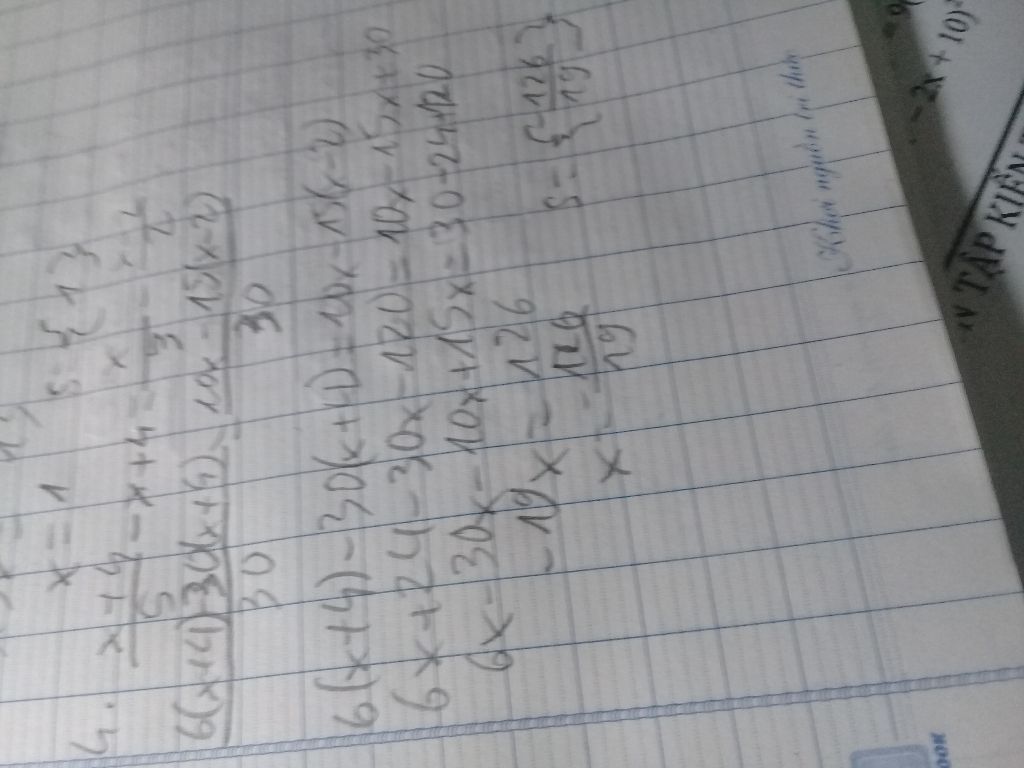 x = 1 S = { 1 }
4. \frac{x+4}{5} - x + 4 = \frac{x}{3} - \frac{x-2}{2}
\frac{6(x+4) 30(x+4)}{30} = \frac{10x - 15(x-2)}{30}
6(x+4) - 30(x+4) = 10x - 15(x-2)
6x + 24 - 30x - 120 = 10x - 15x + 30
6x - 30x - 10x + 15x = 30 - 24 + 120
-19x = 126
x = -\frac{126}{19} S = { -\frac{126}{19} }
- 2x + 10)
TẬP KIẾN